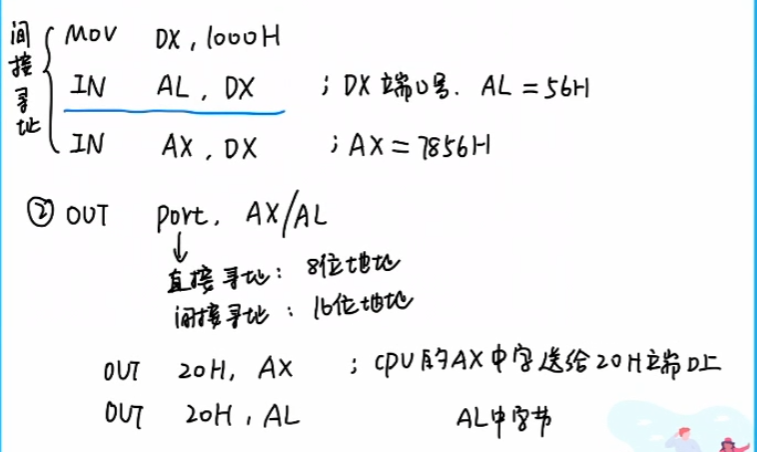 间接寻址
MOV DX, 1000H
IN AL, DX ; DX端口号. AL=56H
IN AX, DX ; AX=7856H
② OUT port, AX/AL
直接寻址: 8位地址
间接寻址: 16位地址
OUT 20H, AX ; CPU的AX中字送给20H端口上
OUT 20H, AL AL中字节